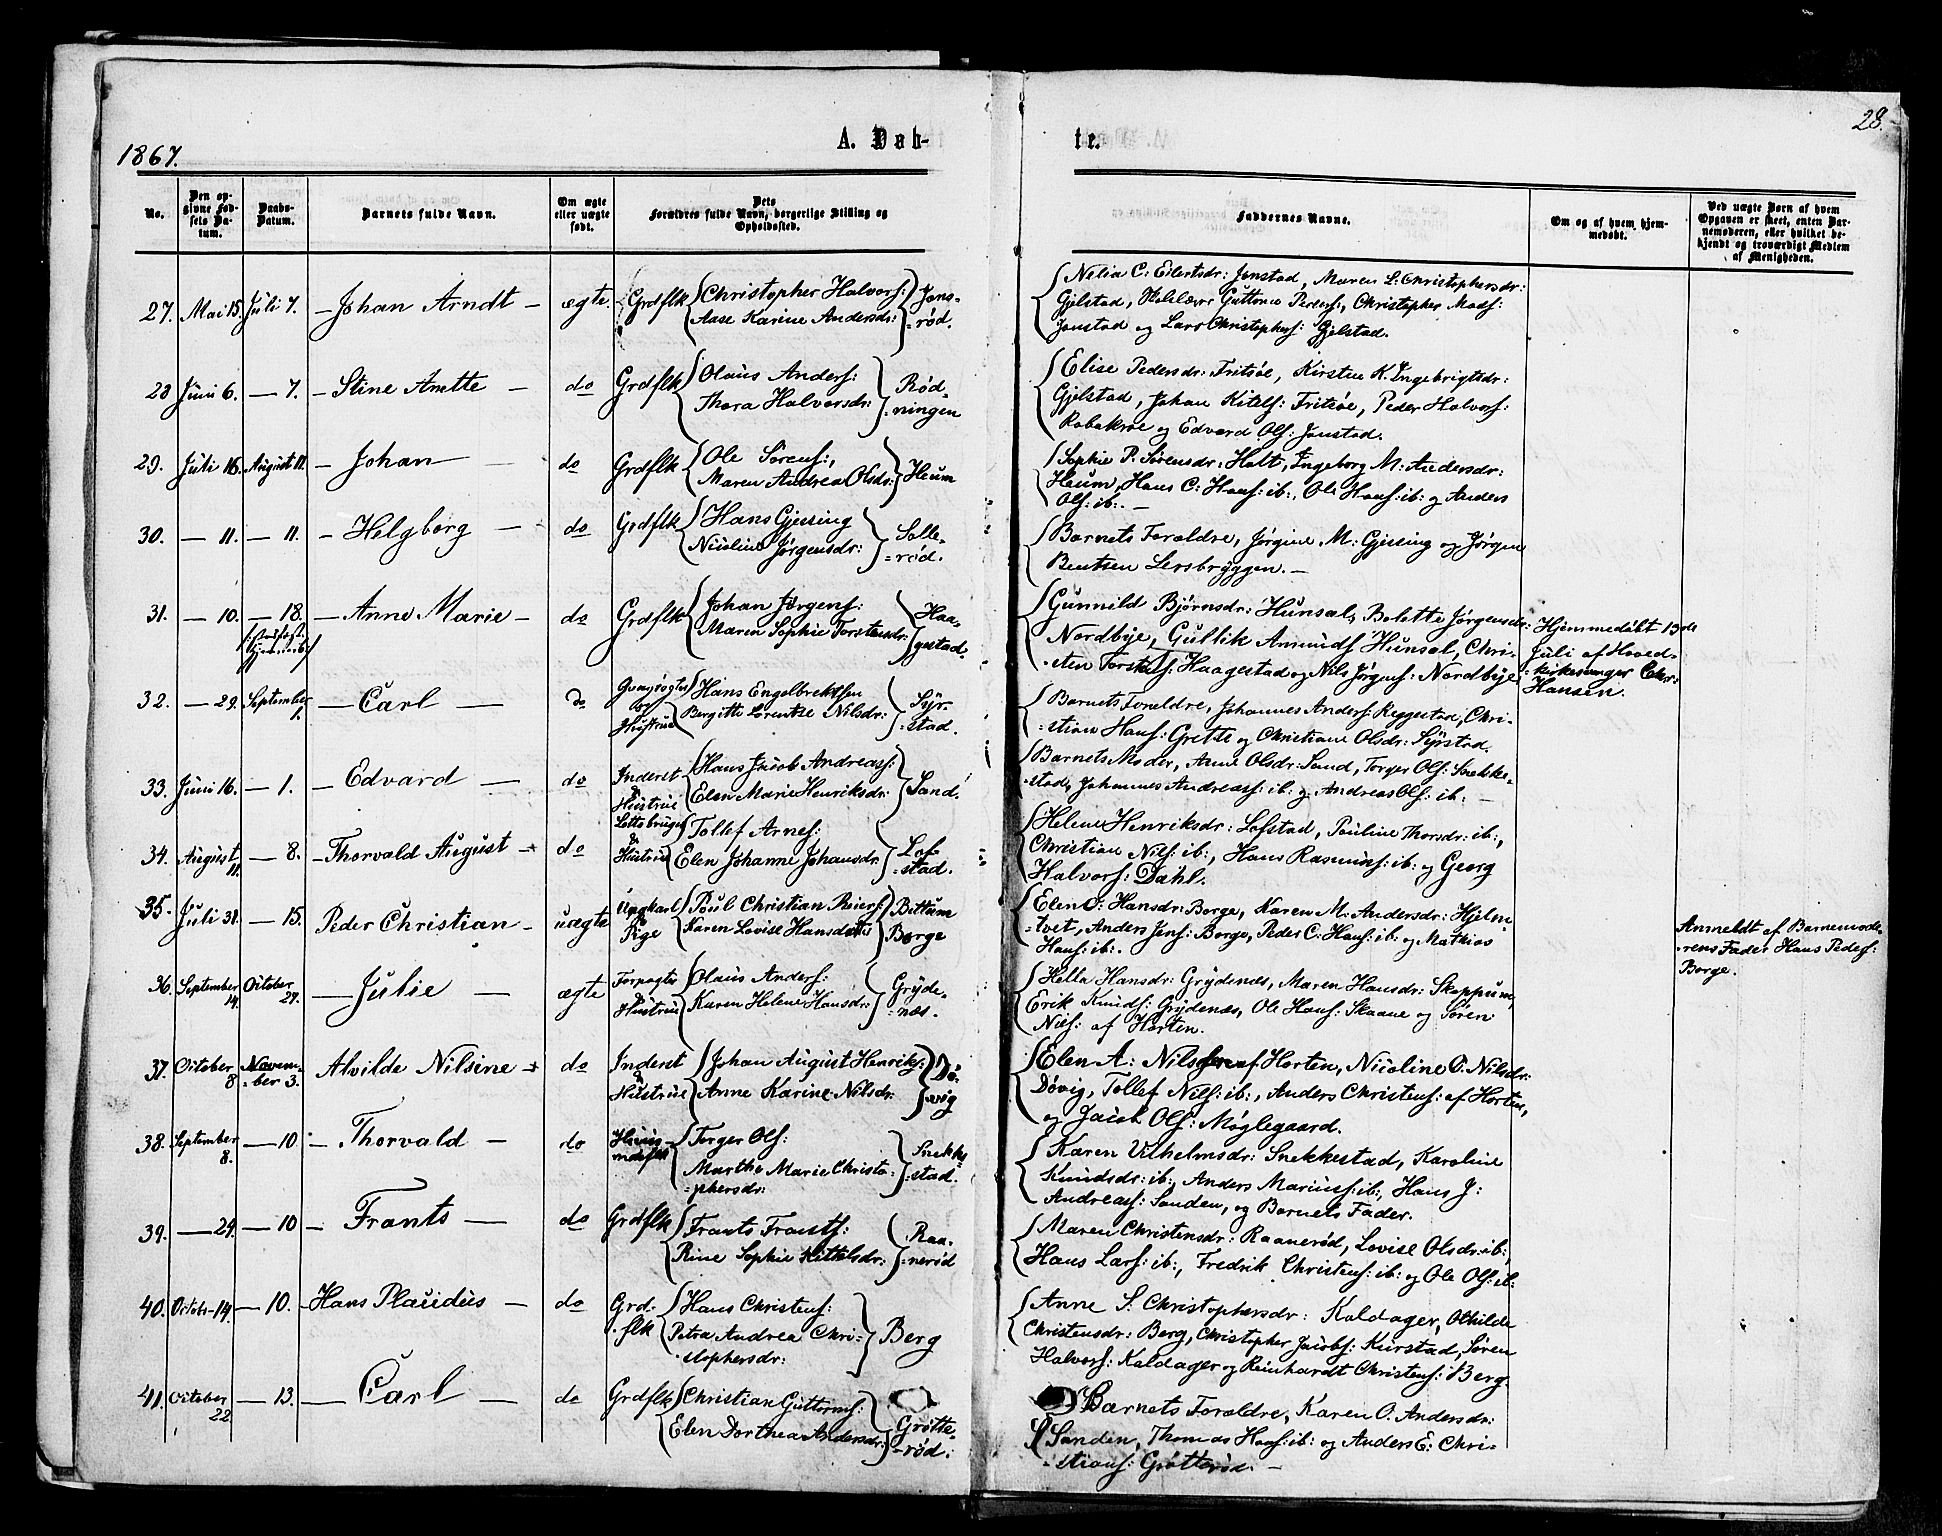 28.
1867.
A. Døb-
te.
No.
Den op-
givne Fød-
sels Da-
tum.
Daabs-
Datum.
Barnets fulde Navn.
Om ægte
eller uægte
født.
Dets
Forældres fulde Navn, borgerlige Stilling og
Opholdssted.
Faddernes Navne.
Om og af hvem hjem-
medøbt.
Ved uægte Børn af hvem
Opgaven er skeet, enten Bar-
nemoderen, eller hvilket be-
kjendt og troværdigt Medlem
af Menigheden.
27. Mai 15. Juli 7. — Johan Arndt — ægte. Grdflk Christopher Halvors: Jons-
Aase Karine Andersdr: =rød.
Nelia C: Eilertsdr: Jonstad, Maren L: Christophersdr:
Gjelstad, Guttorm Peders:, Christopher Mads:
Jonstad og Lars Christophers: Gjelstad.
28 Juni 6. — 7. — Stine Anette — do Grdflk Olaus Anders: Rød-
Thora Halvorsdr: =ningen
Elise Pedersdr: Fritsøe, Kirsten K. Ingebrigtsdr:
Gjelstad, Johan Kitels: Fritsøe, Peder Halvors:
Rabakroe og Edvard Ols: Jonstad.
29. Juli 16. August 11. — Johan — do Grdflk Ole Sørens:, Heum
Maren Andrea Olsdr:
Sophie P. Sørensdr: Holt, Ingeborg M: Andersdr:
Heum, Hans C: Hans: ib:, Ole Hans: ib: og Anders
Ols: ib:. —
30. — 11. — 11. — Helgborg — do Grdflk Hans Gjessing Solle-
Nicoline Jørgensdr: =rød.
Barnets Forældre, Jørgine M: Gjessing og Jørgen
Bentsen Lersbryggen. —
31. — 10. — 18. — Anne Marie — do Grdflk Johan Jørgens: Haa-
Maren Sophie Torstensdr: gestad.
Gunnild Bjørnsdr: Hunsal, Bolette Jørgensdr:
Nordbye, Gullik Amunds: Hunsal, Chri-
sten Torstens: Haagestad og Nils Jørgens: Nordbye
Hjemmedøbt 13de
Juli af Hoved-
kirkesanger Chr:
Hansen.
32. — 29. September 1. — Carl — do Hans Engelbrektsen Syr-
og Hustrue Bergitte Lorentse Nilsdr: =stad.
Barnets Forældre, Johannes Anders: Reggestad, Chri-
=stian Hans: Grette og Christiane Olsdr: Syrstad.
33. Juni 16. — 1. — Edvard — do Inderst Hans Jacob Andreas: Sand.
& Hustrue Elen Marie Henriksdr:
Barnets Moder, Anne Olsdr: Sand, Torger Ols: Snekke-
=stad, Johannes Andreas: ib: og Andreas Ols: ib: —
34. August 11. — 8. — Thorvald August — do Tollef Arnes: Lof-
& Hustrue Elen Johanne Johansdr: =stad.
Helene Henriksdr: Lofstad, Pauline Thorsdr: ib:,
Christian Nils: ib:, Hans Rasmus: ib: og Georg
Halvors: Dahl.
35. Juli 31. — 15. Peder Christian — uægte Ungkarl Poul Christian Reiers: Bettum
Pige Karen Lovise Hansdatter Borge
Elen S: Hansdr: Borge, Karen M: Andersdr: Hjelm-
=tvet, Anders Jens: Borge, Peder C: Hans: ib: og Mathias
Hans: ib:.
Anmeldt af Barnemode-
=rens Fader Hans Peders:
Borge.
36. September 14. October 27. — Julie — ægte Forpagter Olaus Anders: Gryde-
& Hustrue Karen Helene Hansdr: =næs.
Hella Hansdr: Grydenæs, Maren Hansdr: Skoppum,
Erik Knuds: Grydenæs, Ole Hans: Skaane og Søren
Niels: af Horten.
37. October 8. Novem-
=ber 3. Alvilde Nilsine — do Inderst Johan August Henriks: Dø-
& Hustrue Anne Karine Nilsdr: =vig
Elen A: Nilsdr: af Horten, Nicoline O: Nilsdr:
Døvig, Tollef Nils: ib:, Anders Christens: af Horten,
og Jacob Ols: Møglegaard.
38. September 8. — 10. — Thorvald — do Huus-
mdsflk Torger Ols: Snekke-
Marthe Marie Christo- =stad.
=phersdr:
Karen Vilhelmsdr: Snekkestad, Karoline
Knudsdr: ib:, Anders Marius: ib:, Hans J:
Andreas: Sanden, og Barnets Fader.
39. — 29. — 10 — Frants — do Grdflk Frants Frants: Raa-
Rine Sophie Kittelsdr: =nerød
Maren Christensdr: Raanerød, Lovise Olsdr: ib:,
Hans Lars: ib:, Fredrik Christens: ib: og Ole Ols: ib:
40. Octobr 14. — 10. — Hans Placidus — do Grd-
flk Hans Christens: Berg
Petra Andrea Chri-
stophersdr:
Anne S. Christophersdr: Kaldager, Othilde
Christensdr: Berg, Christopher Jacobs: Kirstad, Søren
Halvors: Kaldager og Reinhardt Christens: Berg.
41. October 22. — 13. — Carl — do Grdflk Christian Guttorms: Grøtte-
Elen Dorthea Andersdr: =rød.
Barnets Forældre, Karen O. Andersdr:
Sanden, Thomas Hans: ib: og Anders E: Chri-
=stians: Grøtterød. —